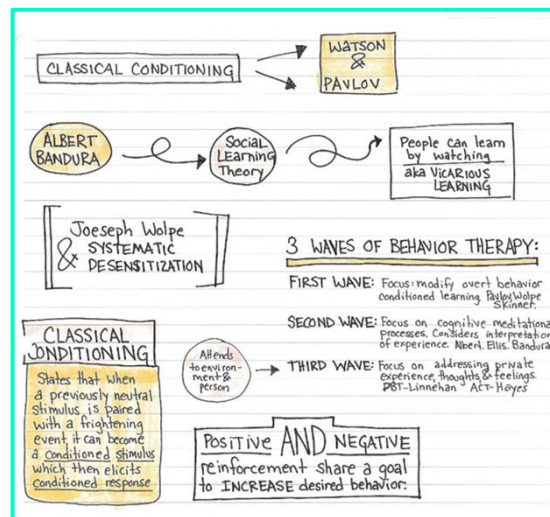 CLASSICAL CONDITIONING
WATSON
&
PAVLOV
ALBERT
BANDURA
Social
LEARNING
Theory
People can learn
by watching
aka VICARIOUS
LEARNING
Joeseph Wolpe
& SYSTEMATIC
DESENSITIZATION
3 WAVES OF BEHAVIOR THERAPY:
FIRST WAVE: Focus: modify overt behavior
conditioned learning Pavlov Wolpe
Skinner.
SECOND WAVE: Focus on cognitive meditational
processes. Considers interpretation
of experience. Albert. Ellis. Bandura
Attends
to environ-
ment &
person
THIRD WAVE: Focus on addressing private
experience, thoughts & feelings.
DBT-Linnehan ACT-Hayes
CLASSICAL
CONDITIONING
States that when
a previously neutral
stimulus is paired
with a frightening
event, it can become
a conditioned stimulus
which then elicits
conditioned response
POSITIVE AND NEGATIVE
reinforcement share a goal
to INCREASE desired behavior.